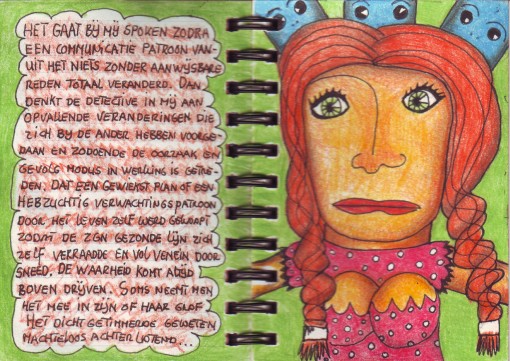 HET GAAT BIJ MIJ SPOKEN ZODRA
EEN COMMUNICATIE PATROON VAN-
UIT HET NIETS ZONDER AANWIJSBARE
REDEN TOTAAL VERANDERD. DAN
DENKT DE DETECTIVE IN MIJ AAN
OPVALLENDE VERANDERINGEN DIE
ZICH BIJ DE ANDER HEBBEN VOORGE-
DAAN EN ZODOENDE DE OORZAAK EN
GEVOLG MODUS IN WERKING IS GETRE-
DEN. DAT EEN GEWIEKST PLAN OF EEN
HEBZUCHTIG VERWACHTINGSPATROON
DOOR HET LEVEN ZELF WERD GEWIPT
ZODAT DE ZGN GEZONDE LIJN ZICH
ZELF VERRAADDE EN VOL VENEIN DOOR
SNEED. DE WAARHEID KOMT ALTIJD
BOVEN DRIJVEN. SOMS NEEMT MEN
HET MEE IN ZIJN OF HAAR GRAF
HET DICHT GETIMMERDE GEWETEN
MACHTELOOS ACHTER LATEND...